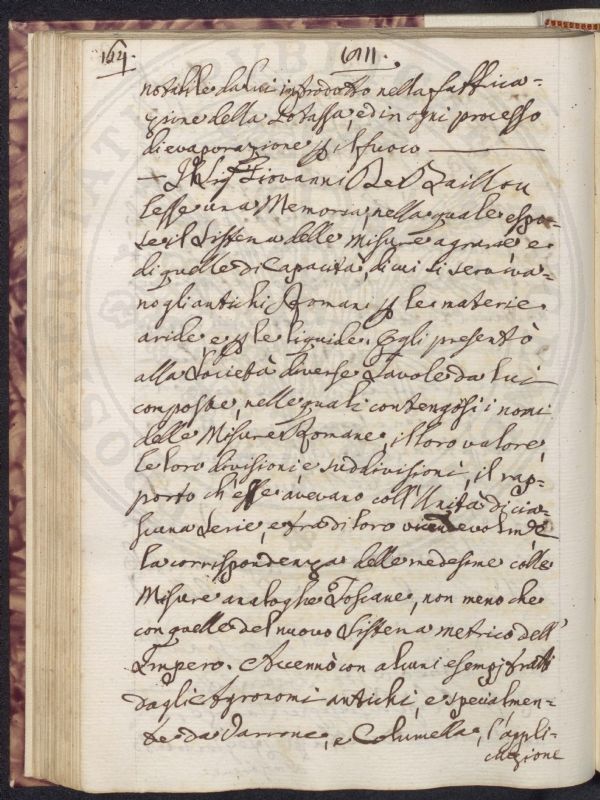 164.
1811.
notabile da lui introdotto nella fabbrica=
zione della Potassa, ed in ogni processo
di evaporazione p il fuoco
Il Sig Giovanni De Baillou
lesse una Memoria, nella quale espo=
se il Sistema delle misure agrarie e
di quelle di Capacità di cui si serviva=
no gli antichi Romani p le materie
aride e p le liquide. Egli presentò
alla Società diverse Tavole da lui
composte, nelle quali contengosi i nomi
delle Misure Romane, il loro valore,
le loro divisioni e suddivisioni, il rap=
porto ch'esse avevano coll'Unità di cia=
scuna Serie, e fra di loro vicendevolm.te
la corrispondenza delle medesime colle
Misure analoghe Toscane, non meno che
con quelle del nuovo Sistema metrico dell'
Impero. Accennò con alcuni esempj tratti
dagli Agronomi antichi, e specialmen=
te da Varrone, e Columella, l'appli=
cazione